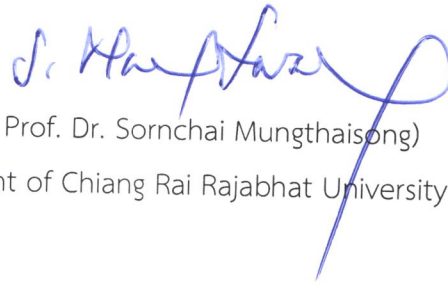 Prof. Dr. Sornchai Mungthaisong)
nt of Chiang Rai Rajabhat University